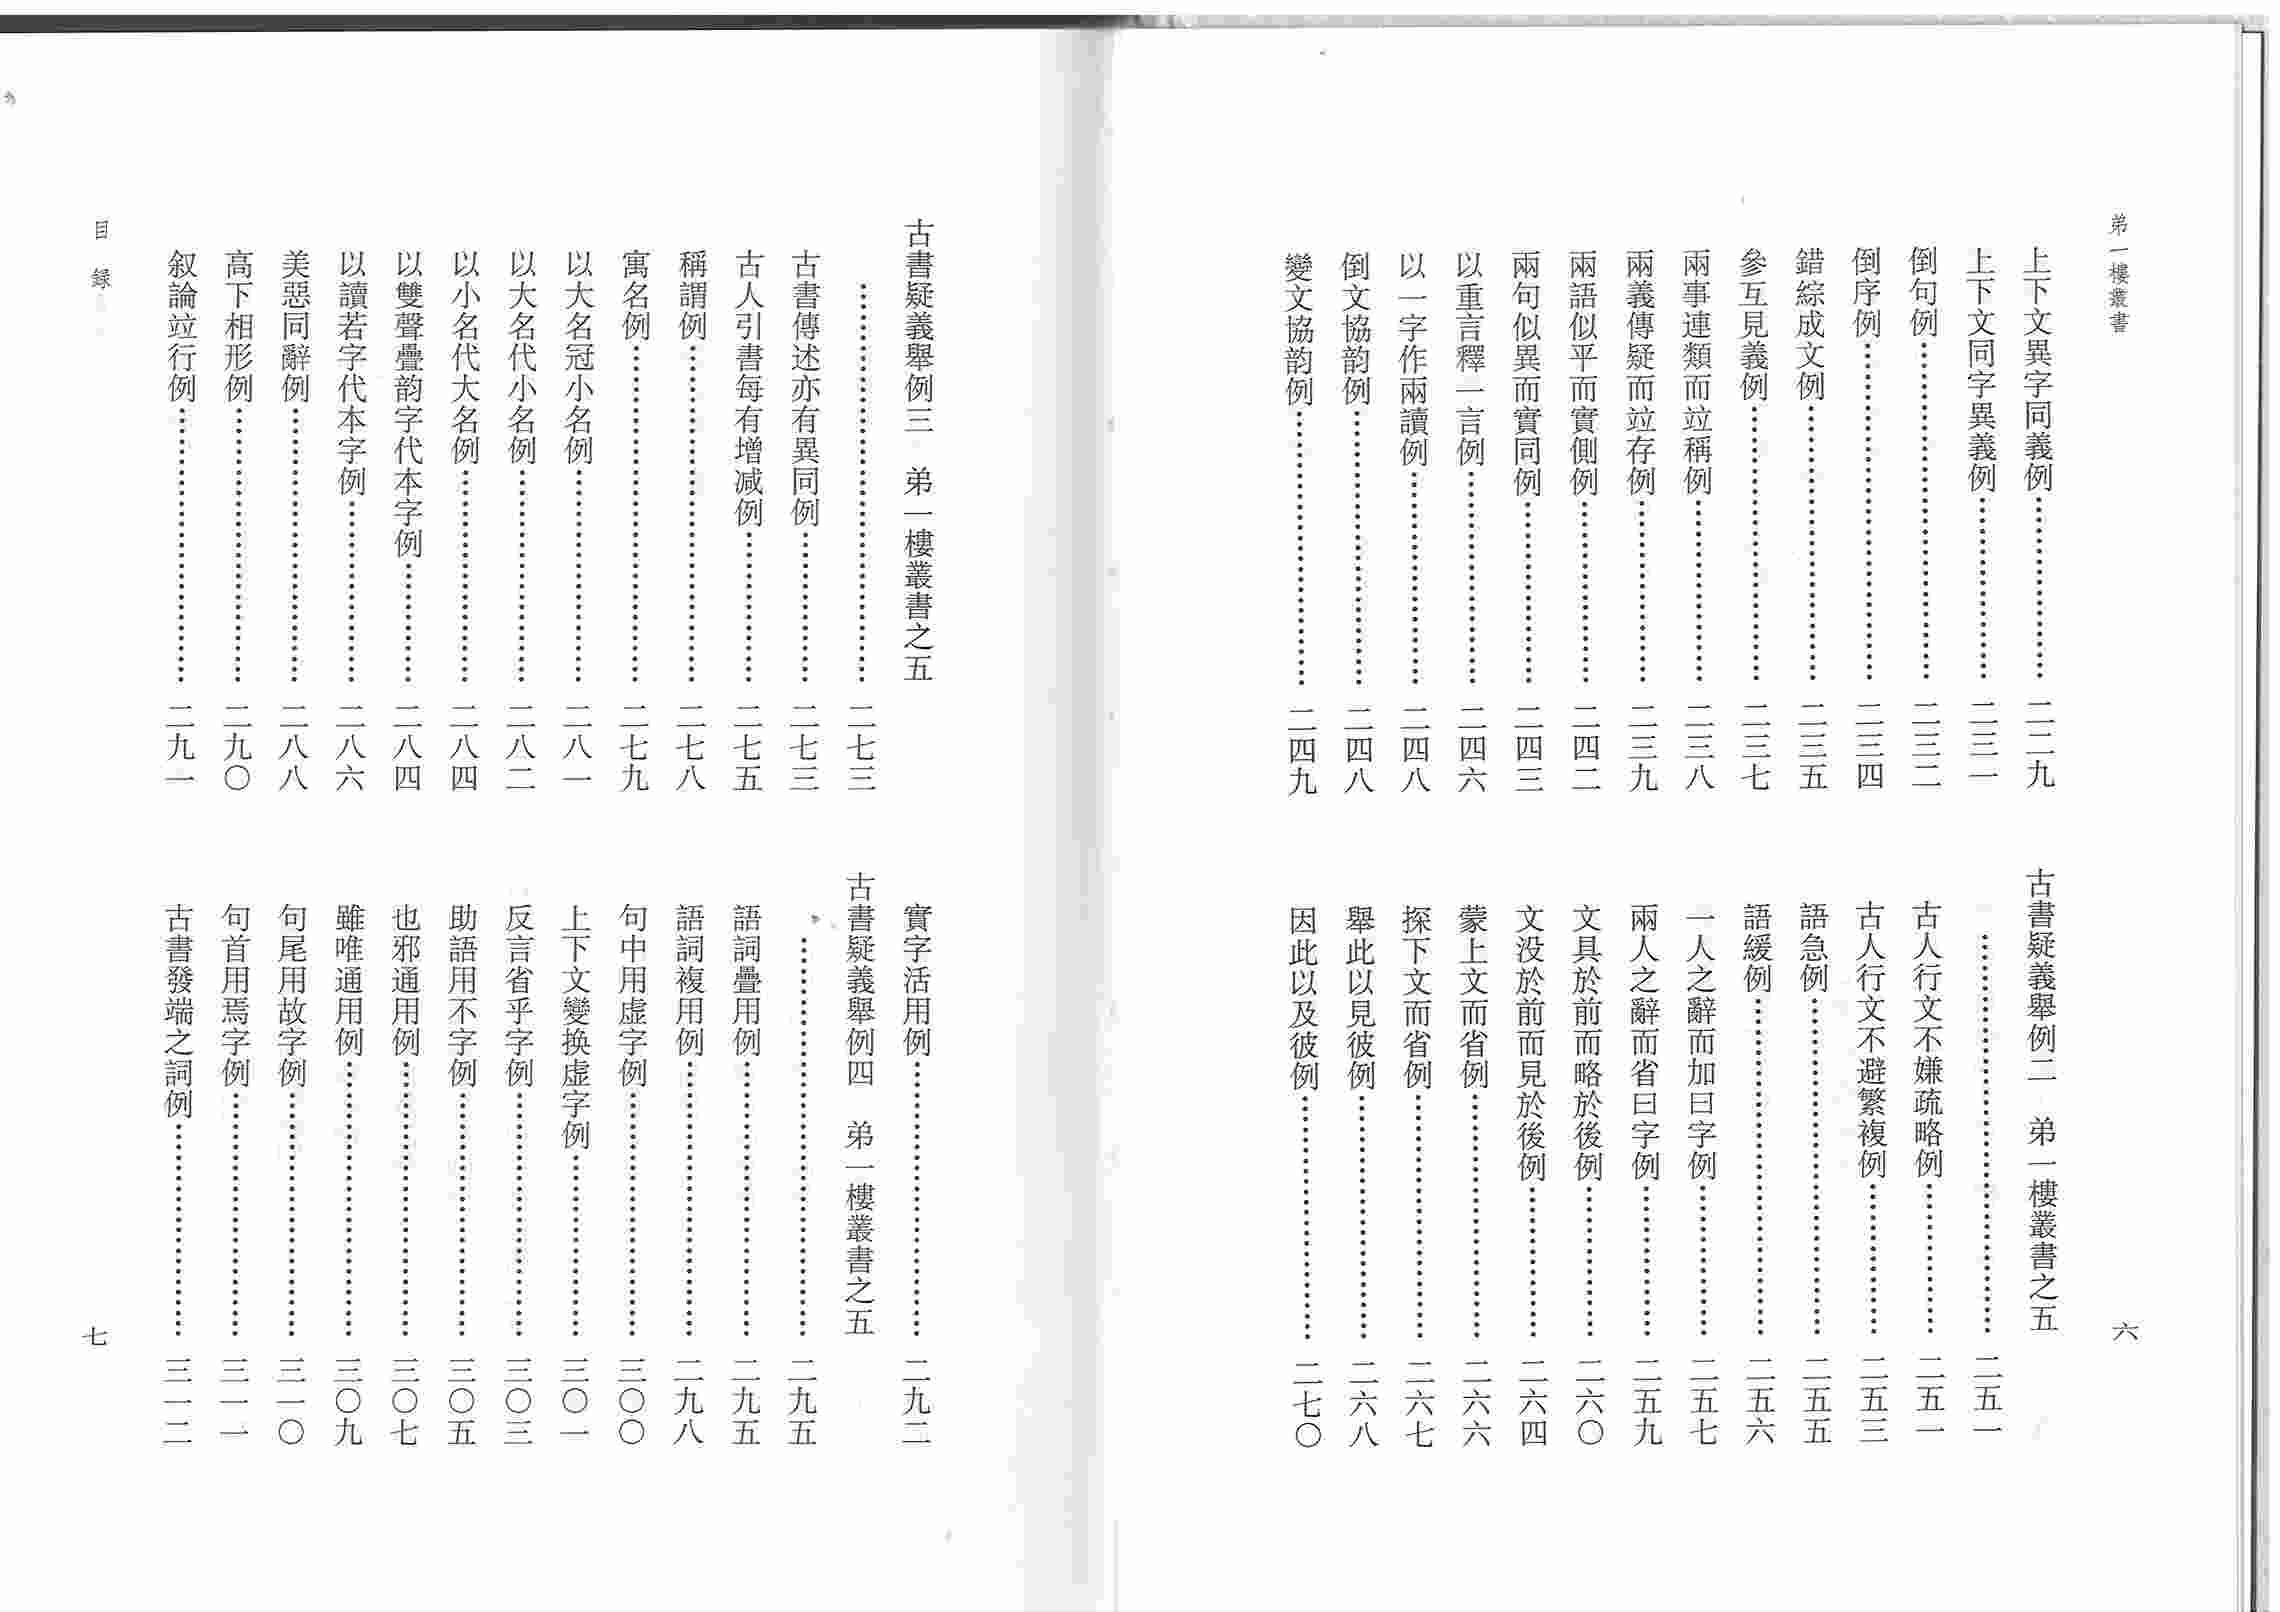 弟一樓叢書
上下文異字同義例……二二九
上下文同字異義例……二三一
倒句例……二三二
倒序例……二三四
錯綜成文例……二三五
參互見義例……二三七
兩事連類而竝稱例……二三八
兩義傳疑而竝存例……二三九
兩語似平而實側例……二四二
兩句似異而實同例……二四三
以重言釋一言例……二四六
以一字作兩讀例……二四八
倒文協韵例……二四八
變文協韵例……二四九
古書疑義舉例二　弟一樓叢書之五
……二五一
古人行文不嫌疏略例……二五一
古人行文不避繁複例……二五三
語急例……二五五
語緩例……二五六
一人之辭而加曰字例……二五七
兩人之辭而省曰字例……二五九
文具於前而略於後例……二六〇
文没於前而見於後例……二六四
蒙上文而省例……二六六
探下文而省例……二六七
舉此以見彼例……二六八
因此以及彼例……二七〇
六
古書疑義舉例三　弟一樓叢書之五
……二七三
古書傳述亦有異同例……二七三
古人引書每有增减例……二七五
稱謂例……二七八
寓名例……二七九
以大名冠小名例……二八一
以大名代小名例……二八二
以小名代大名例……二八四
以雙聲疊韵字代本字例……二八四
以讀若字代本字例……二八六
美惡同辭例……二八八
高下相形例……二九〇
叙論竝行例……二九一
實字活用例……二九二
古書疑義舉例四　弟一樓叢書之五
……二九五
語詞疊用例……二九五
語詞複用例……二九八
句中用虚字例……三〇〇
上下文變换虚字例……三〇一
反言省乎字例……三〇三
助語用不字例……三〇五
也邪通用例……三〇七
雖唯通用例……三〇九
句尾用故字例……三一〇
句首用焉字例……三一一
古書發端之詞例……三一二
目録
七